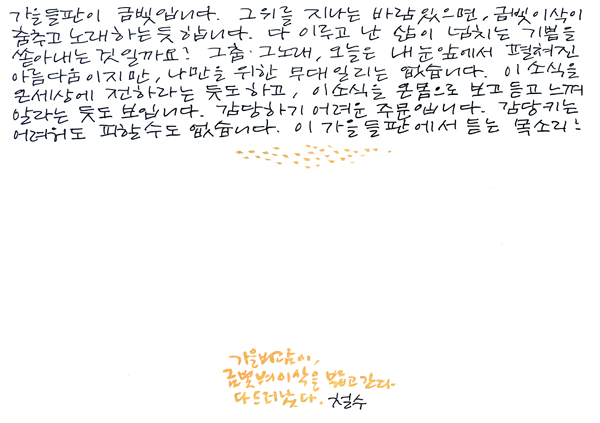 가을들판이 금빛입니다. 그위를 지나는 바람있으면, 금빛이삭이
춤추고 노래하는 듯 합니다. 다 이루고 난 삶이 넘치는 기쁨을
쏟아내는 것일까요? 그춤·그노래, 오늘은 내 눈앞에서 펼쳐진
아름다움이지만, 나만을 위한 무대일리는 없습니다. 이 소식을
온세상에 전하라는 듯도하고, 이소식을 온몸으로 보고 듣고 느껴
알라는 듯도 보입니다. 감당하기 어려운 주문입니다. 감당키는
어려워도 피할수도 없습니다. 이 가을 들판에서 듣는 목소리는
가을바람이,
금빛벼이삭을 밟고간다
다드러났다. 철수